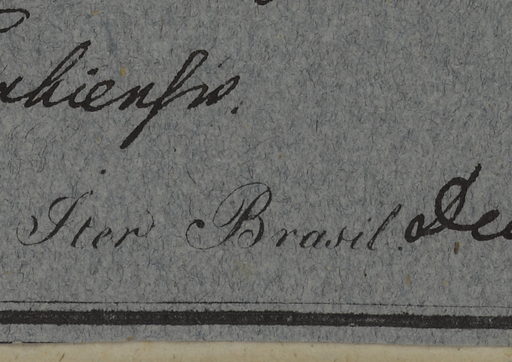 ahiensis.
Iter Brasil. Dec